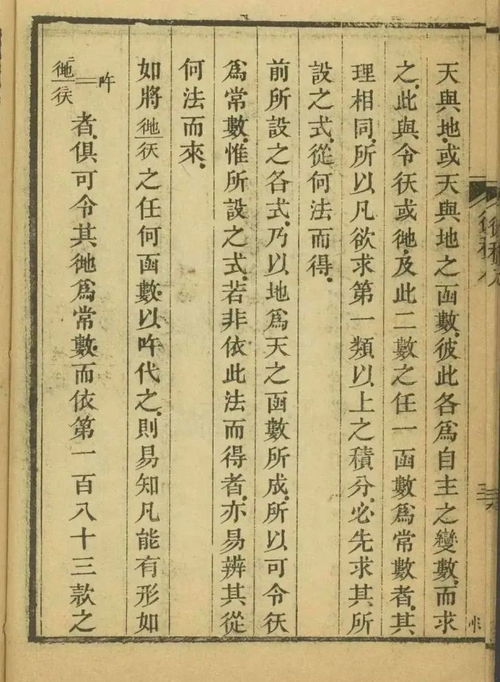 天與地或天與地之函數彼此各爲自主之變數而求
之此與令彳天或彳地及此二數之任一函數爲常數者其
理相同所以凡欲求第一類以上之積分必先求其所
設之式從何法而得
前所設之各式乃以地爲天之函數所成所以可令彳天
爲常數惟所設之式若非依此法而得者亦易辨其從
何法而來
如將彳地彳天之任何函數以吘代之則易知凡能有形如
彳地彳天=吘者俱可令其彳地爲常數而依第一百八十三款之